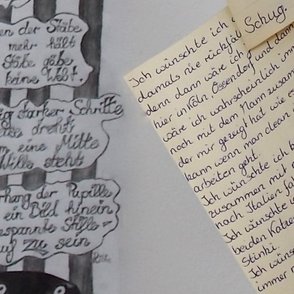 en der Stäbe
mehr hält
Stäbe gäbe
keine Welt.
starker Schritte
dreht
m eine Mitte
Wille steht
rhang der Pupille
ein Bild hinein
espannte Stille -
auf zu sein
Schug.
Ich wünschte ich
damals nie rückfäl
denn dann wäre ich
hier in Köln Ossendorf und dann
wäre ich wahrscheinlich imm
noch mit dem Mann zusamm
der mir gezeigt hat wie s
kann wenn man clean
arbeiten geht.
Ich wünschte ich
zusammen mit
nach Italien fa
Ich wünschte
beiden Katze
Stinki.
Ich wüns
immer n